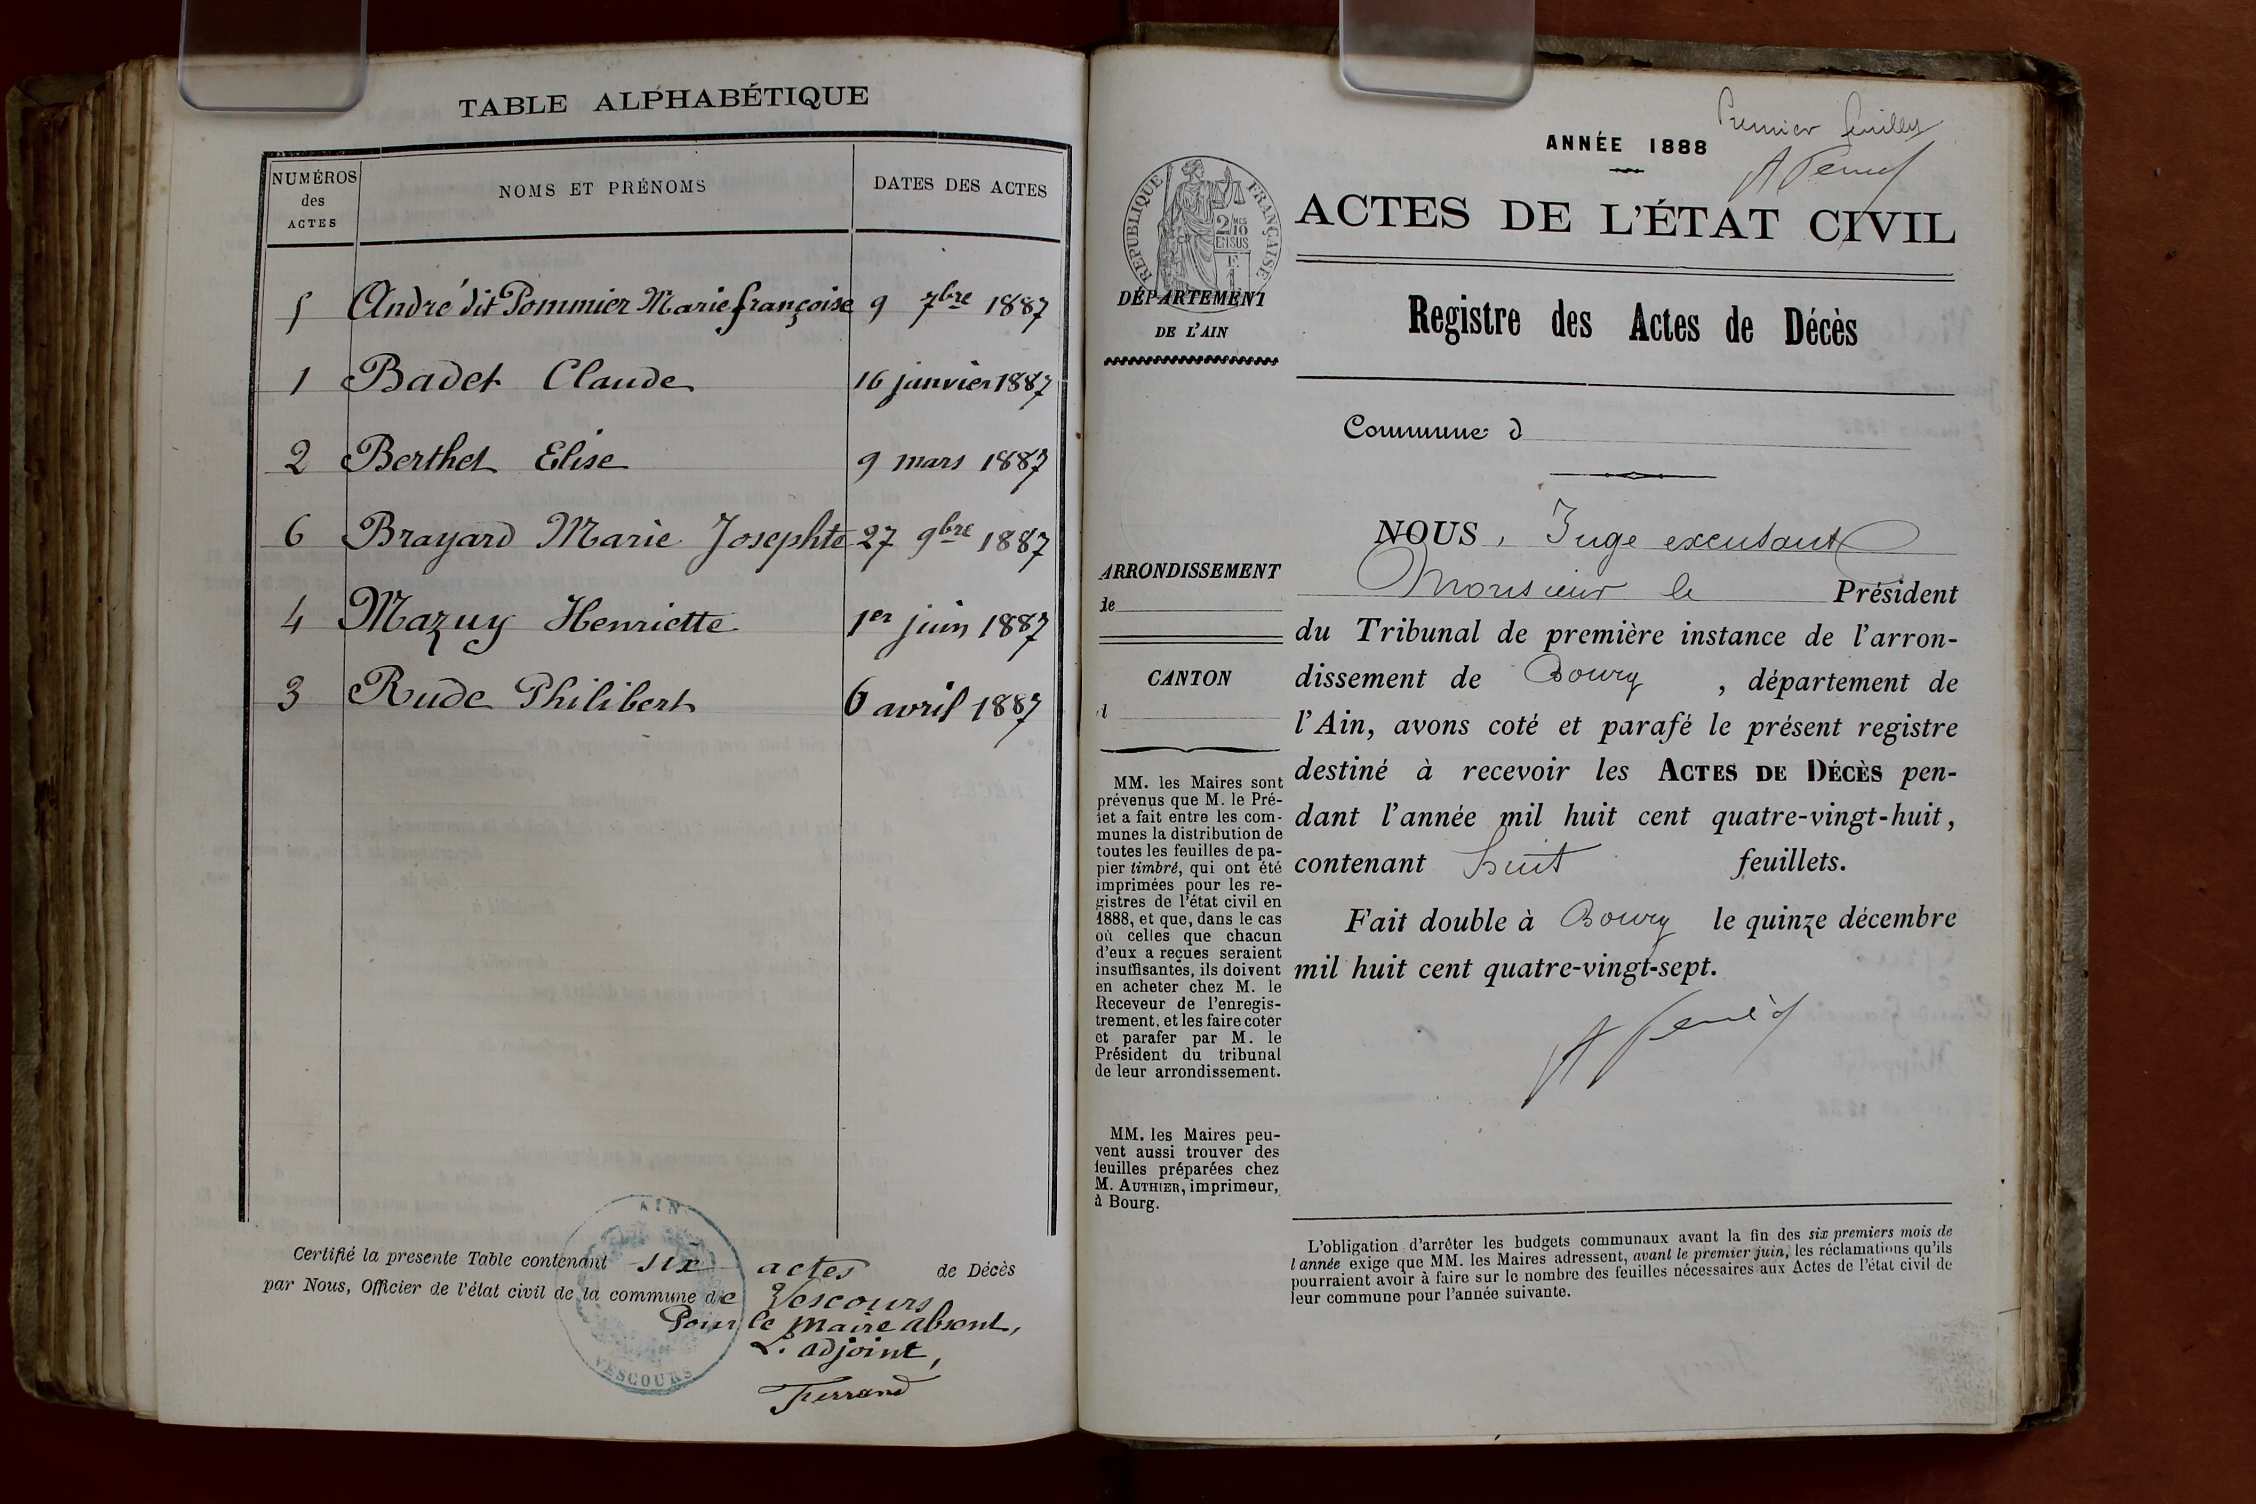 TABLE ALPHABÉTIQUE
NUMÉROS des ACTES NOMS ET PRÉNOMS DATES DES ACTES
5 André dit Pommier Marie françoise 9 7bre 1887
1 Badet Claude 16 janvier 1887
2 Berthet Elise 9 mars 1887
6 Brayard Marie Josephte 27 9bre 1887
4 Mazuy Henriette 1er juin 1887
3 Rude Philibert 6 avril 1887
Certifié la presente Table contenant six actes de Décès
par Nous, Officier de l'état civil de la commune de Vescours
Pour le maire absent,
L'adjoint,
Ferrand
AIN
VESCOURS
Premier feuillet
ANNÉE 1888
RÉPUBLIQUE FRANÇAISE
2/10 MES
EN SUS
ACTES DE L'ÉTAT CIVIL
DÉPARTEMENT
DE L'AIN
Registre des Actes de Décès
Commune d
ARRONDISSEMENT
de
CANTON
d
MM. les Maires sont
prévenus que M. le Pré-
fet a fait entre les com-
munes la distribution de
toutes les feuilles de pa-
pier timbré, qui ont été
imprimées pour les re-
gistres de l'état civil en
1888, et que, dans le cas
où celles que chacun
d'eux a reçues seraient
insuffisantes, ils doivent
en acheter chez M. le
Receveur de l'enregis-
trement, et les faire coter
et parafer par M. le
Président du tribunal
de leur arrondissement.
MM. les Maires peu-
vent aussi trouver des
feuilles préparées chez
M. AUTHIER, imprimeur,
à Bourg.
NOUS, Juge excusant
Monsieur le Président
du Tribunal de première instance de l'arron-
dissement de Bourg, département de
l'Ain, avons coté et parafé le présent registre
destiné à recevoir les ACTES DE DÉCÈS pen-
dant l'année mil huit cent quatre-vingt-huit,
contenant huit feuillets.
Fait double à Bourg le quinze décembre
mil huit cent quatre-vingt-sept.
L'obligation d'arrêter les budgets communaux avant la fin des six premiers mois de
l'année exige que MM. les Maires adressent, avant le premier juin, les réclamations qu'ils
pourraient avoir à faire sur le nombre des feuilles nécessaires aux Actes de l'état civil de
leur commune pour l'année suivante.